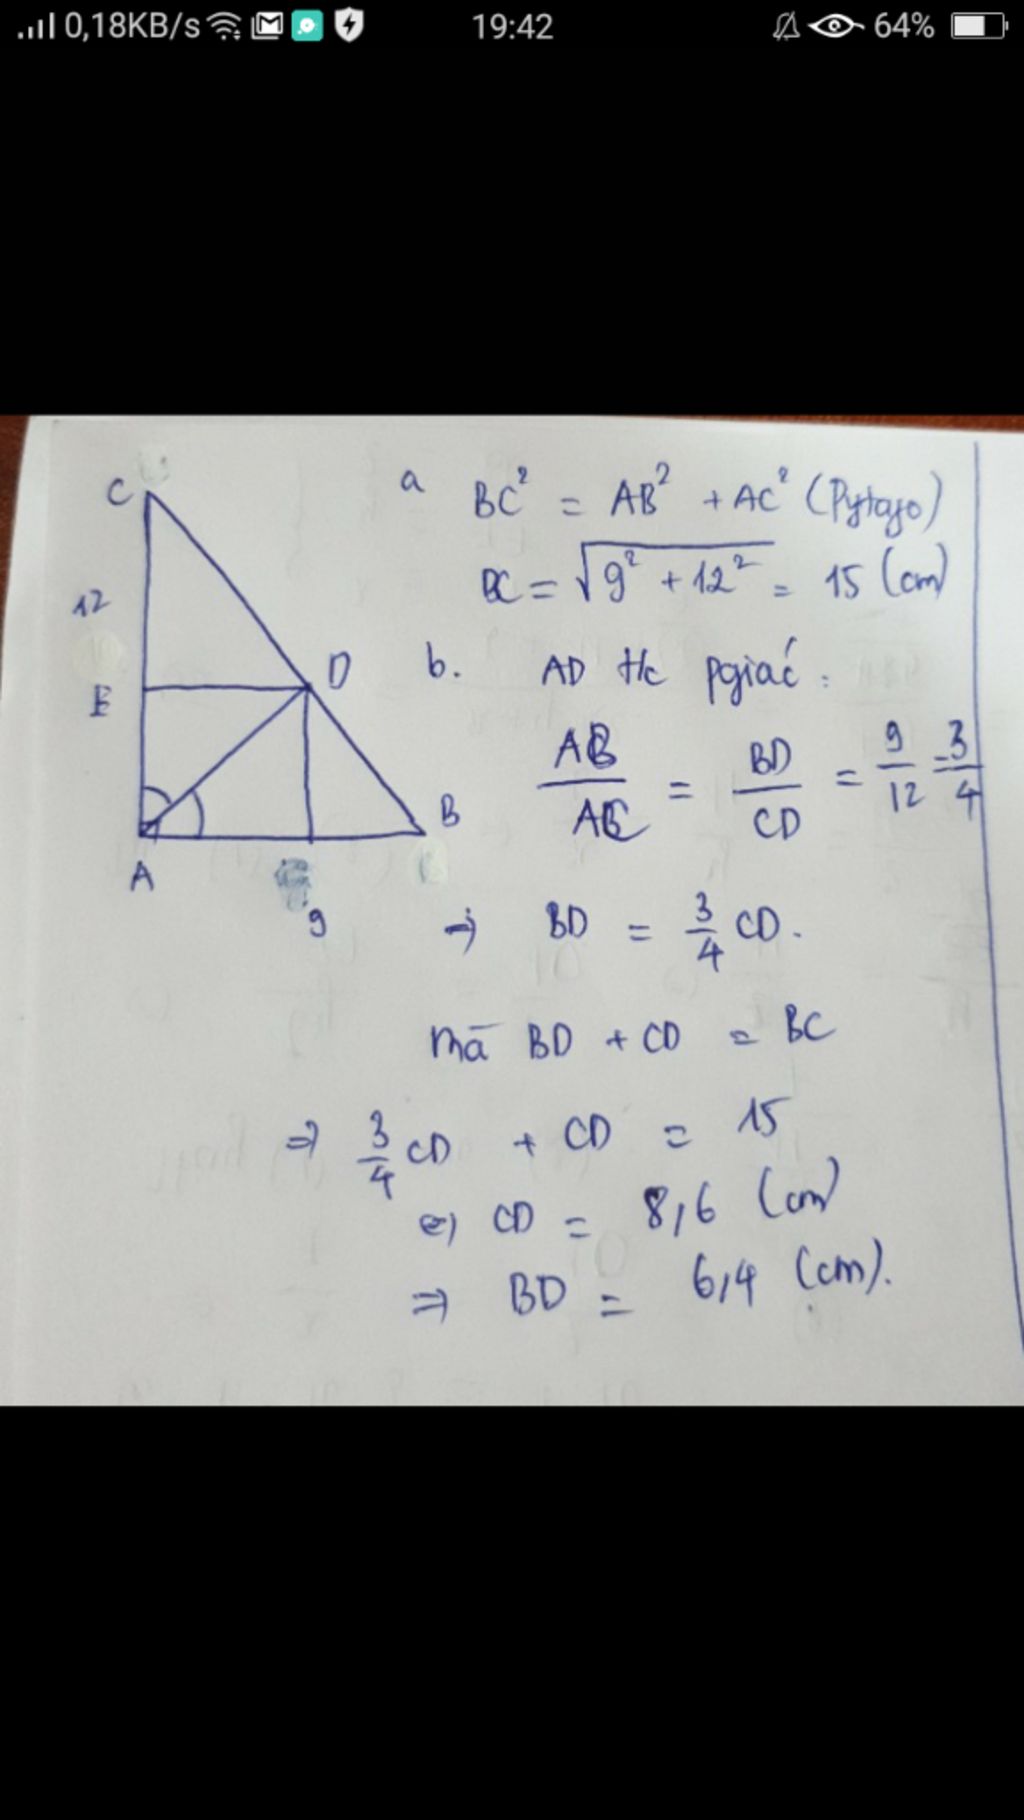 0,18KB/s 19:42 64%
C
12
E
D
B
A
9
a BC² = AB² + AC² (Pytago)
BC = √9² + 12² = 15 (cm)
b. AD t/c pgiác :
AB/AC = BD/CD = 9/12 = 3/4
=> BD = 3/4 CD.
mà BD + CD = BC
=> 3/4 CD + CD = 15
<=> CD = 8,6 (cm)
=> BD = 6,4 (cm).